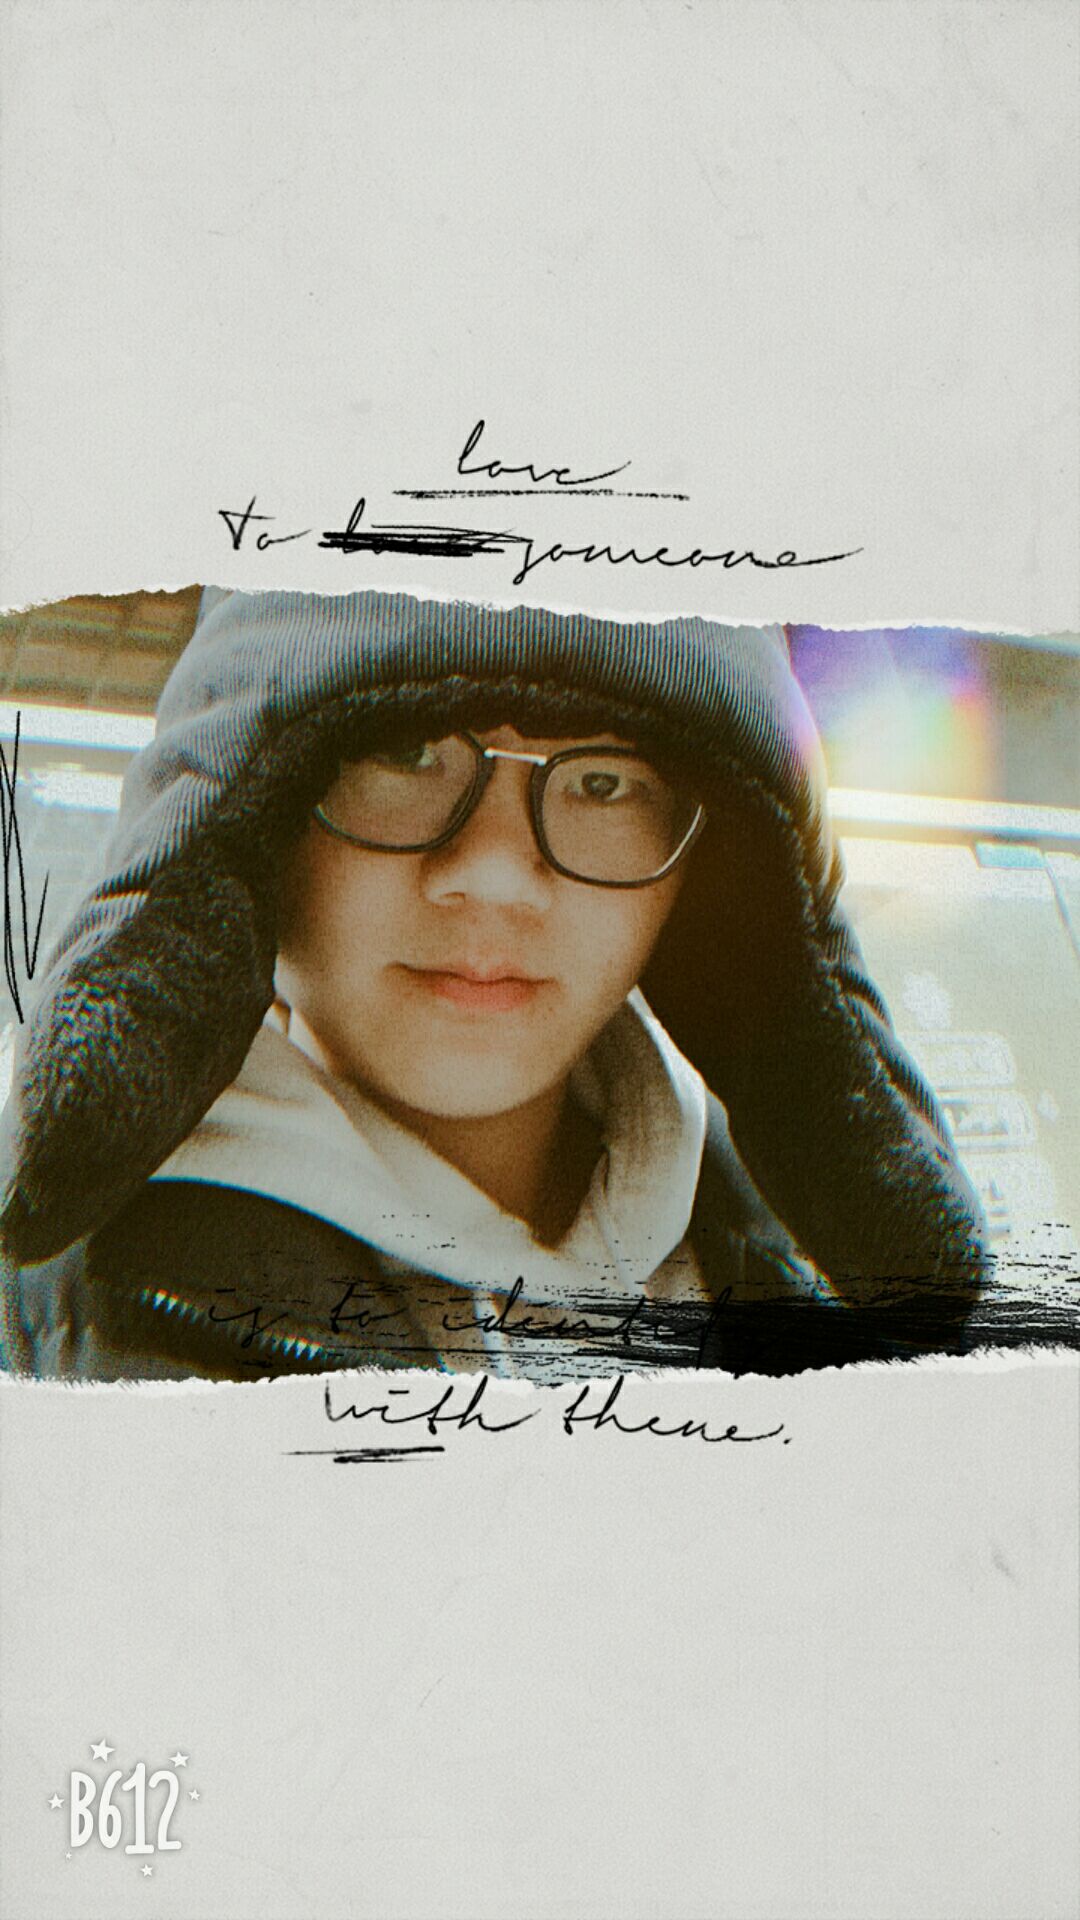 love
to someone
is to identif
with theme.
B612